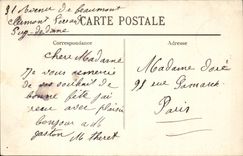 31 Avenue de Beaumont
Clermont Ferrand
Puy-de-dome
CARTE POSTALE
Correspondance
Adresse
chere Madame
je vous remercie
de vos souhait de
bonne fête j'ai
reçu avec plaisir
bonjour a M
gaston M theret
Madame doré
91 rue
Paris